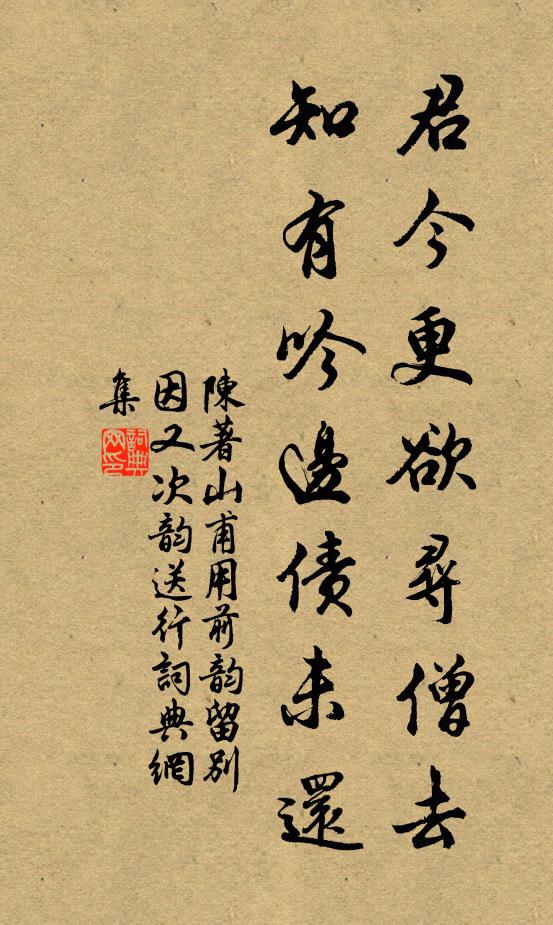 君今更欲尋僧去
知有吟邊債未還
陳著山甫用前韵留別
因又次韵送行詞典網
集
詞典
网印